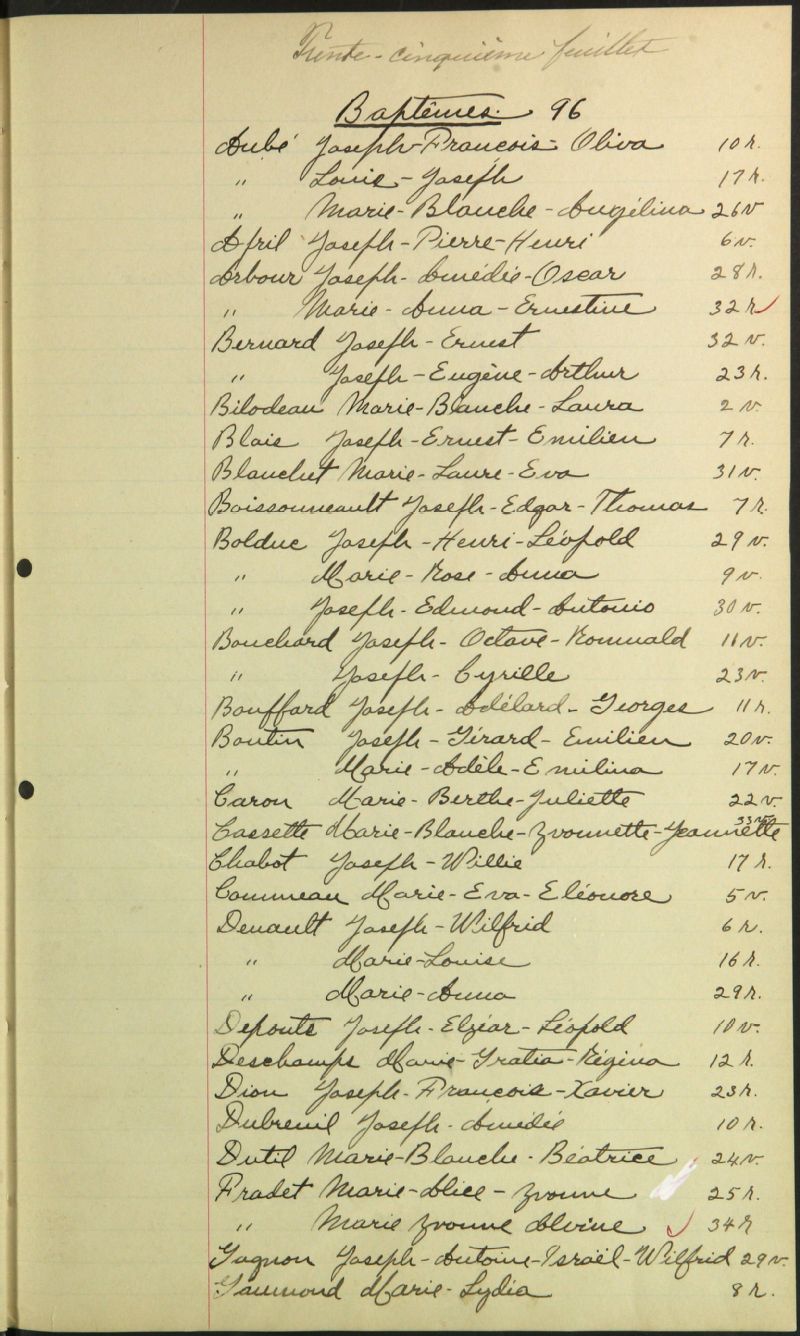 Trente-cinquième feuillet
Baptêmes. 96
Aubé Joseph-François-Oliva 10 r.
" Louis-Joseph 17 r.
" Marie-Blanche-Angélina 26 v
Afril Joseph-Pierre-Henri 6 v.
Arbour Joseph-Amédée-Oscar 28 r.
" Marie-Anna-Ernestine 32 r
Bernard Joseph-Ernest 32 v.
" Joseph-Eugène-Arthur 23 r.
Bilodeau Marie-Blanche-Laura 2 v.
Blais Joseph-Ernest-Emilien 7 r.
Blanchet Marie-Laure-Eva 31 v.
Boissonneault Joseph-Edgar-Thomas 7 r.
Bolduc Joseph-Henri-Léopold 29 v.
" Marie-Rose-Anna 9 v.
" Joseph-Edmond-Antonio 30 v.
Bouchard Joseph-Octave-Romuald 11 v.
" Joseph-Cyrille 23 v.
Bouffard Joseph-Adélard-Georges 11 r.
Boutin Joseph-Gérard-Emilien 20 v.
" Marie-Adèle-Emilina 17 v.
Caron Marie-Berthe-Juliette 22 v.
Cassette Marie-Blanche-Yvonnette-Jeannette 33 v.
Chabot Joseph-Willie 17 r.
Commeau Marie-Eva-Eléonore 5 v.
Denault Joseph-Wilfrid 6 r.
" Marie-Louise 16 r.
" Marie-Anna 29 r.
Deponts Joseph-Elzéar-Léopold 10 v.
Deschamps Marie-Gratia-Régina 12 r.
Dion Joseph-François-Xavier 23 r.
Dubreuil Joseph-Amédée 10 r.
Dutil Marie-Blanche-Béatrice 24 v.
Fradet Marie-Alice-Yvonne 25 r.
" Marie Yvonne Alvine 34 r
Gagnon Joseph-Antoine-Israël-Wilfrid 29 v.
Gaumond Marie-Lydia 8 r.